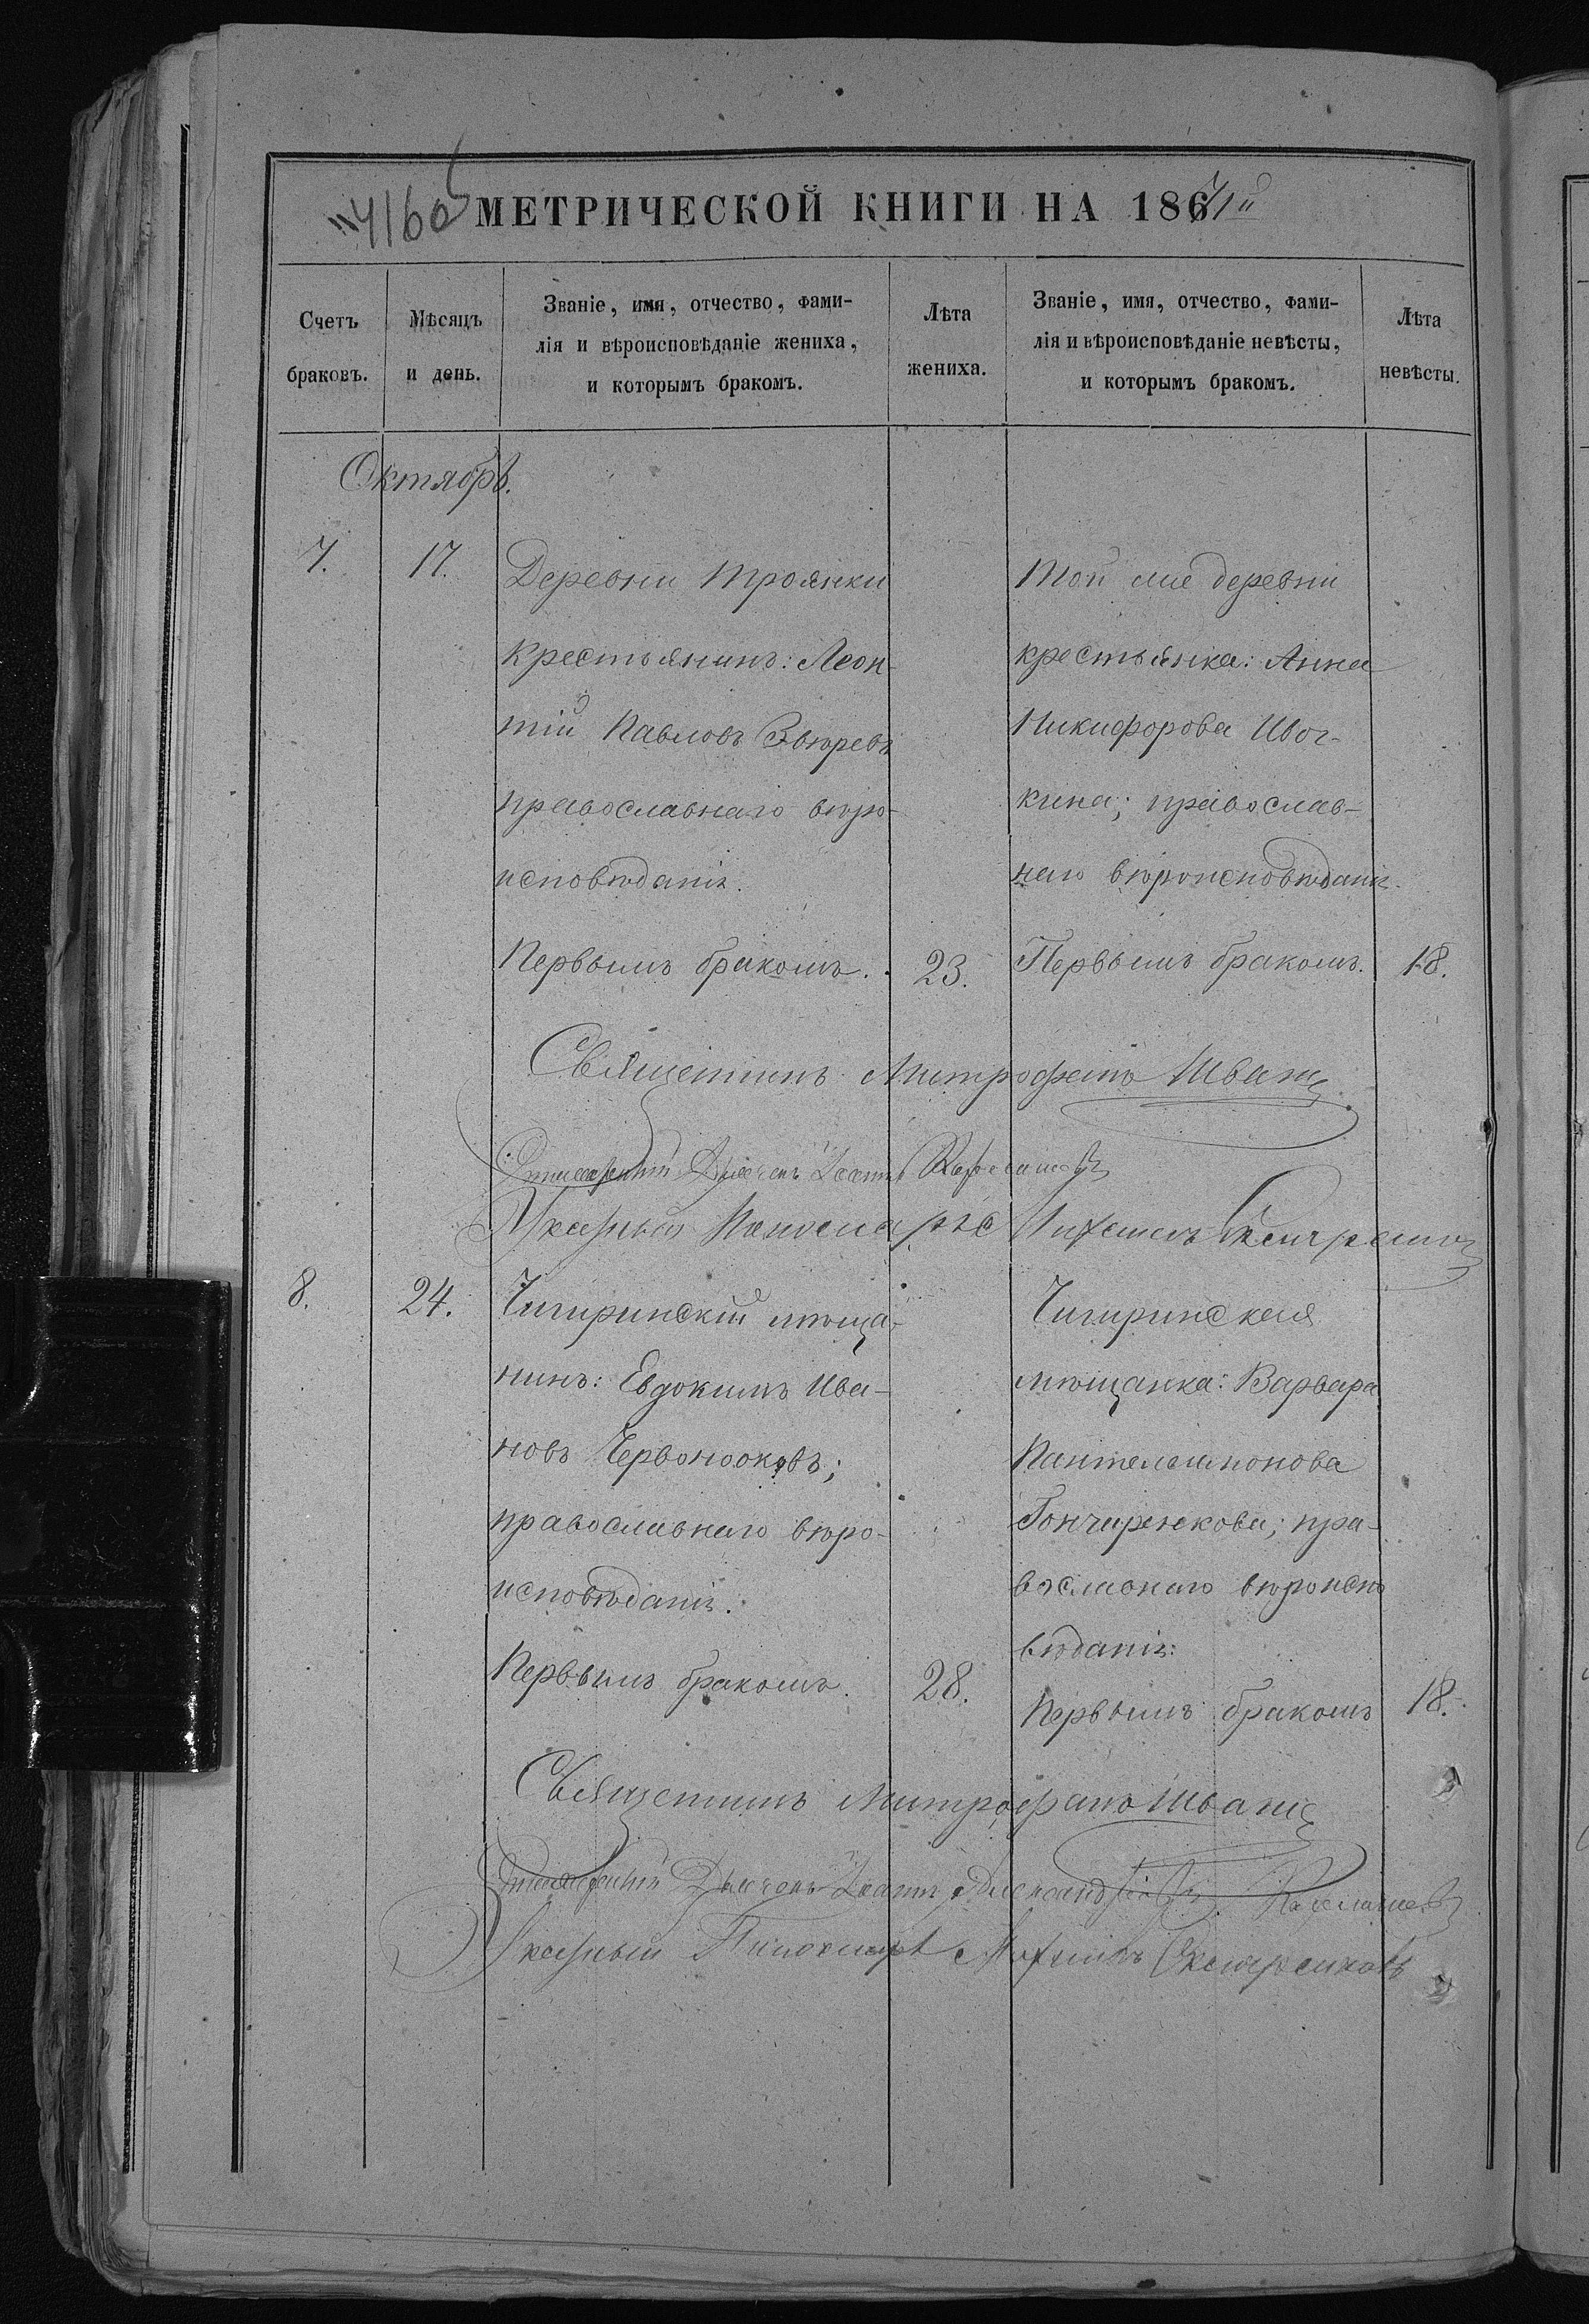 "4160
МЕТРИЧЕСКОЙ КНИГИ НА 1871й
Счетъ браковъ.
Мѣсяцъ и день.
Званіе, имя, отчество, фами-
лія и вѣроисповѣданіе жениха,
и которымъ бракомъ.
Лѣта жениха.
Званіе, имя, отчество, фами-
лія и вѣроисповѣданіе невѣсты,
и которымъ бракомъ.
Лѣта невѣсты.
Октябрь.
7.
17.
Деревни Троянки
крестьянинъ: Леон-
тій Павловъ Звѣревъ
православнаго вѣро-
исповѣданія.
Первымъ бракомъ.
23.
Той же деревни
крестьянка: Анна
Никифорова Ивоч-
кина; православ-
наго вѣроисповѣданія.
Первымъ бракомъ.
18.
Священникъ Митрофанъ Иваниц
Діаконъ Іоаннъ
Указный Пономарь
8.
24.
Чигиринскій мѣща-
нинъ: Евдокимъ Ива-
новъ Червонооковъ;
православнаго вѣро-
исповѣданія.
Первымъ бракомъ.
28.
Чигиринская
мѣщанка: Варвара
Пантелеимонова
Гончаренкова; пра-
вославнаго вѣроиспо
вѣданія:
Первымъ бракомъ
18.
Священникъ Митрофанъ Иваниц
Діаконъ Іоаннъ Александровъ
Указный Пономарь